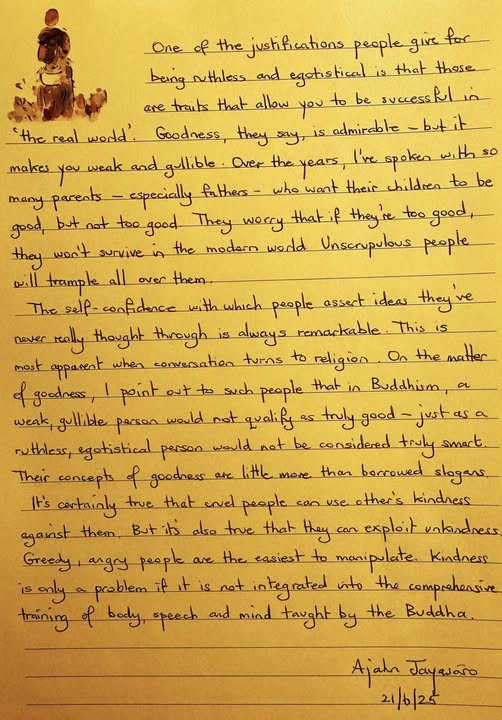 One of the justifications people give for
being ruthless and egotistical is that those
are traits that allow you to be successful in
'the real world'. Goodness, they say, is admirable – but it
makes you weak and gullible. Over the years, I've spoken with so
many parents – especially fathers – who want their children to be
good, but not too good. They worry that if they're too good,
they won't survive in the modern world. Unscrupulous people
will trample all over them.
The self-confidence with which people assert ideas they've
never really thought through is always remarkable. This is
most apparent when conversation turns to religion. On the matter
of goodness, I point out to such people that in Buddhism, a
weak, gullible person would not qualify as truly good – just as a
ruthless, egotistical person would not be considered truly smart.
Their concepts of goodness are little more than borrowed slogans.
It's certainly true that cruel people can use other's kindness
against them. But it's also true that they can exploit unkindness.
Greedy, angry people are the easiest to manipulate. Kindness
is only a problem if it is not integrated into the comprehensive
training of body, speech and mind taught by the Buddha.
Ajahn Jayasāro
21/6/25